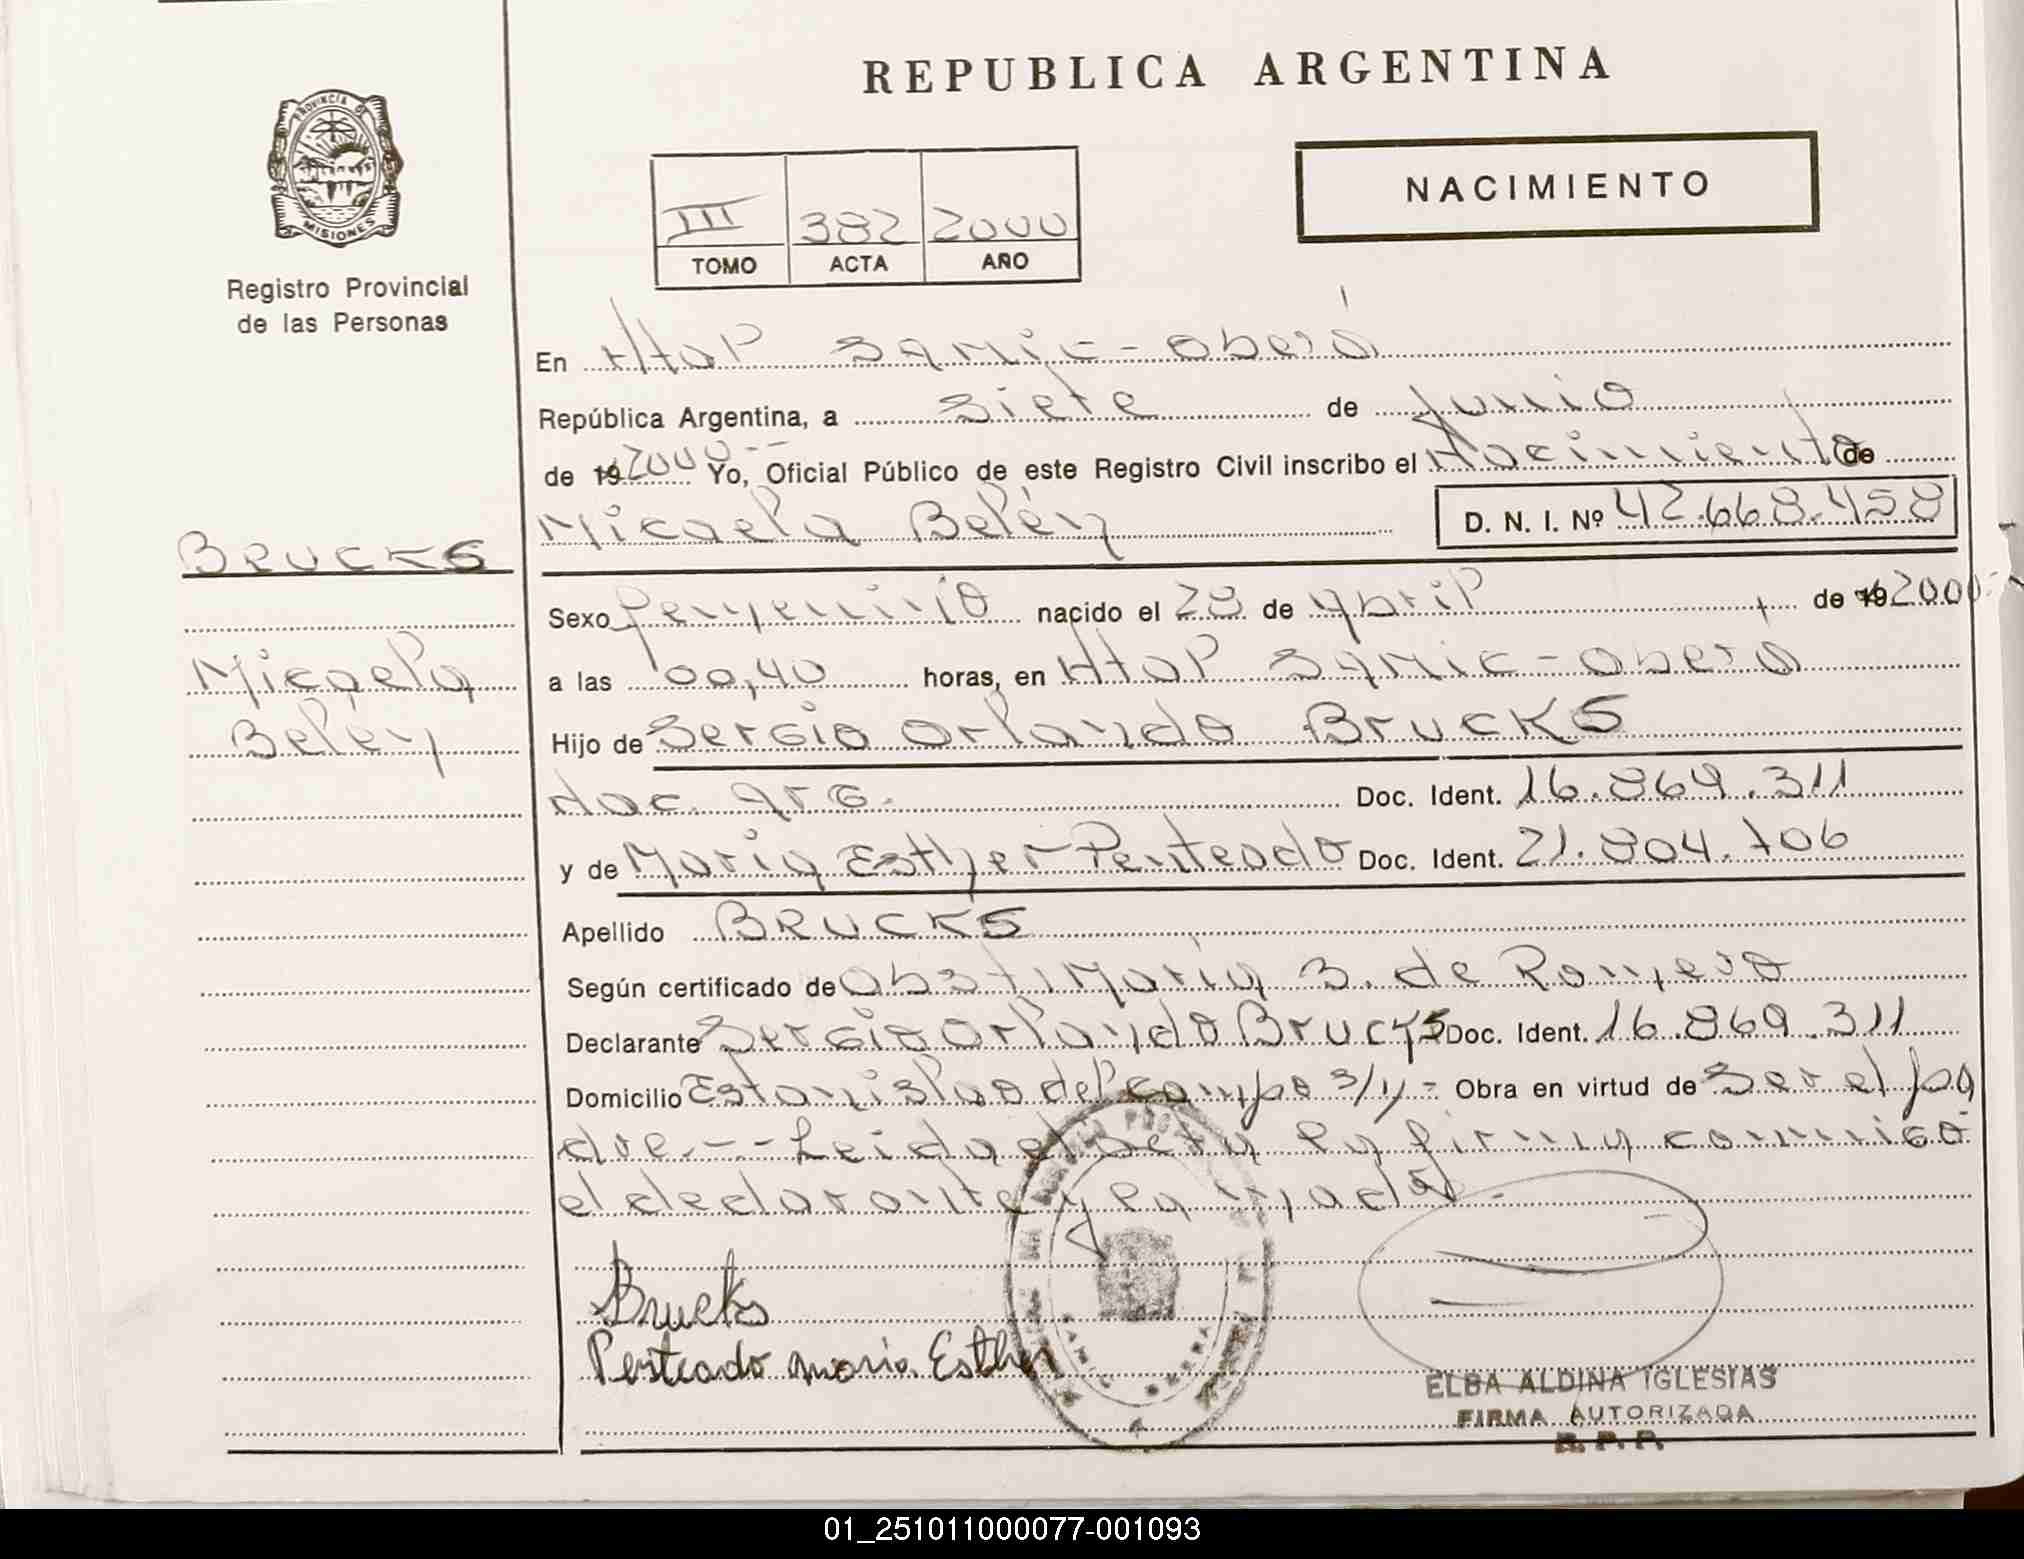 REPUBLICA ARGENTINA
PROVINCIA DE
MISIONES
Registro Provincial
de las Personas
III 382 2000
TOMO ACTA AÑO
NACIMIENTO
En Htal Samic - Oberá
República Argentina, a siete de Junio
de 19 2000 -- Yo, Oficial Público de este Registro Civil inscribo el Nacimiento de
Micaela Belén D. N. I. Nº 42.668.458
BRUCKS
Micaela
Belén
Sexo femenino nacido el 28 de Abril de 19 2000-
a las 00,40 horas, en Htal Samic - Oberá
Hijo de Sergio Orlando BRUCKS
doc. arg. Doc. Ident. 16.869.311
y de Maria Esther Penteado Doc. Ident. 21.804.706
Apellido BRUCKS
Según certificado de Obst. Maria S. de Romero
Declarante Sergio Orlando BRUCKS Doc. Ident. 16.869.311
Domicilio Estanislao del campo s/n - Obra en virtud de ser el pa
dre. -- Leida el acta la firman conmigo
el declarante y la madre -
Brucks
Penteado Maria Esther
ELBA ALDINA IGLESIAS
FIRMA AUTORIZADA
R. P. P.
01_251011000077-001093